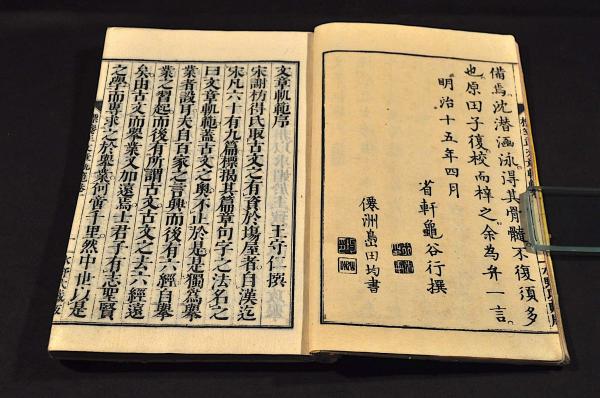 備焉沈潜涵泳得其骨髓不復須多
也原田子復校而梓之余為弁一言
明治十五年四月
省軒龜谷行撰
僊洲島田均書
文章軌範序 王守仁撰
宋謝枋得氏取古文之有資於場屋者自漢迄
宋凡六十有九篇標揭其篇章句字之法名之
曰文章軌範蓋古文之奧不止於是是獨為舉
業者設耳夫自百家之言興而後有六經自舉
業之習起而後有所謂古文古文之去六經遠
矣由古文而舉業又加遠焉士君子有志聖賢
之學而專求之於舉業何啻千里然中世以是